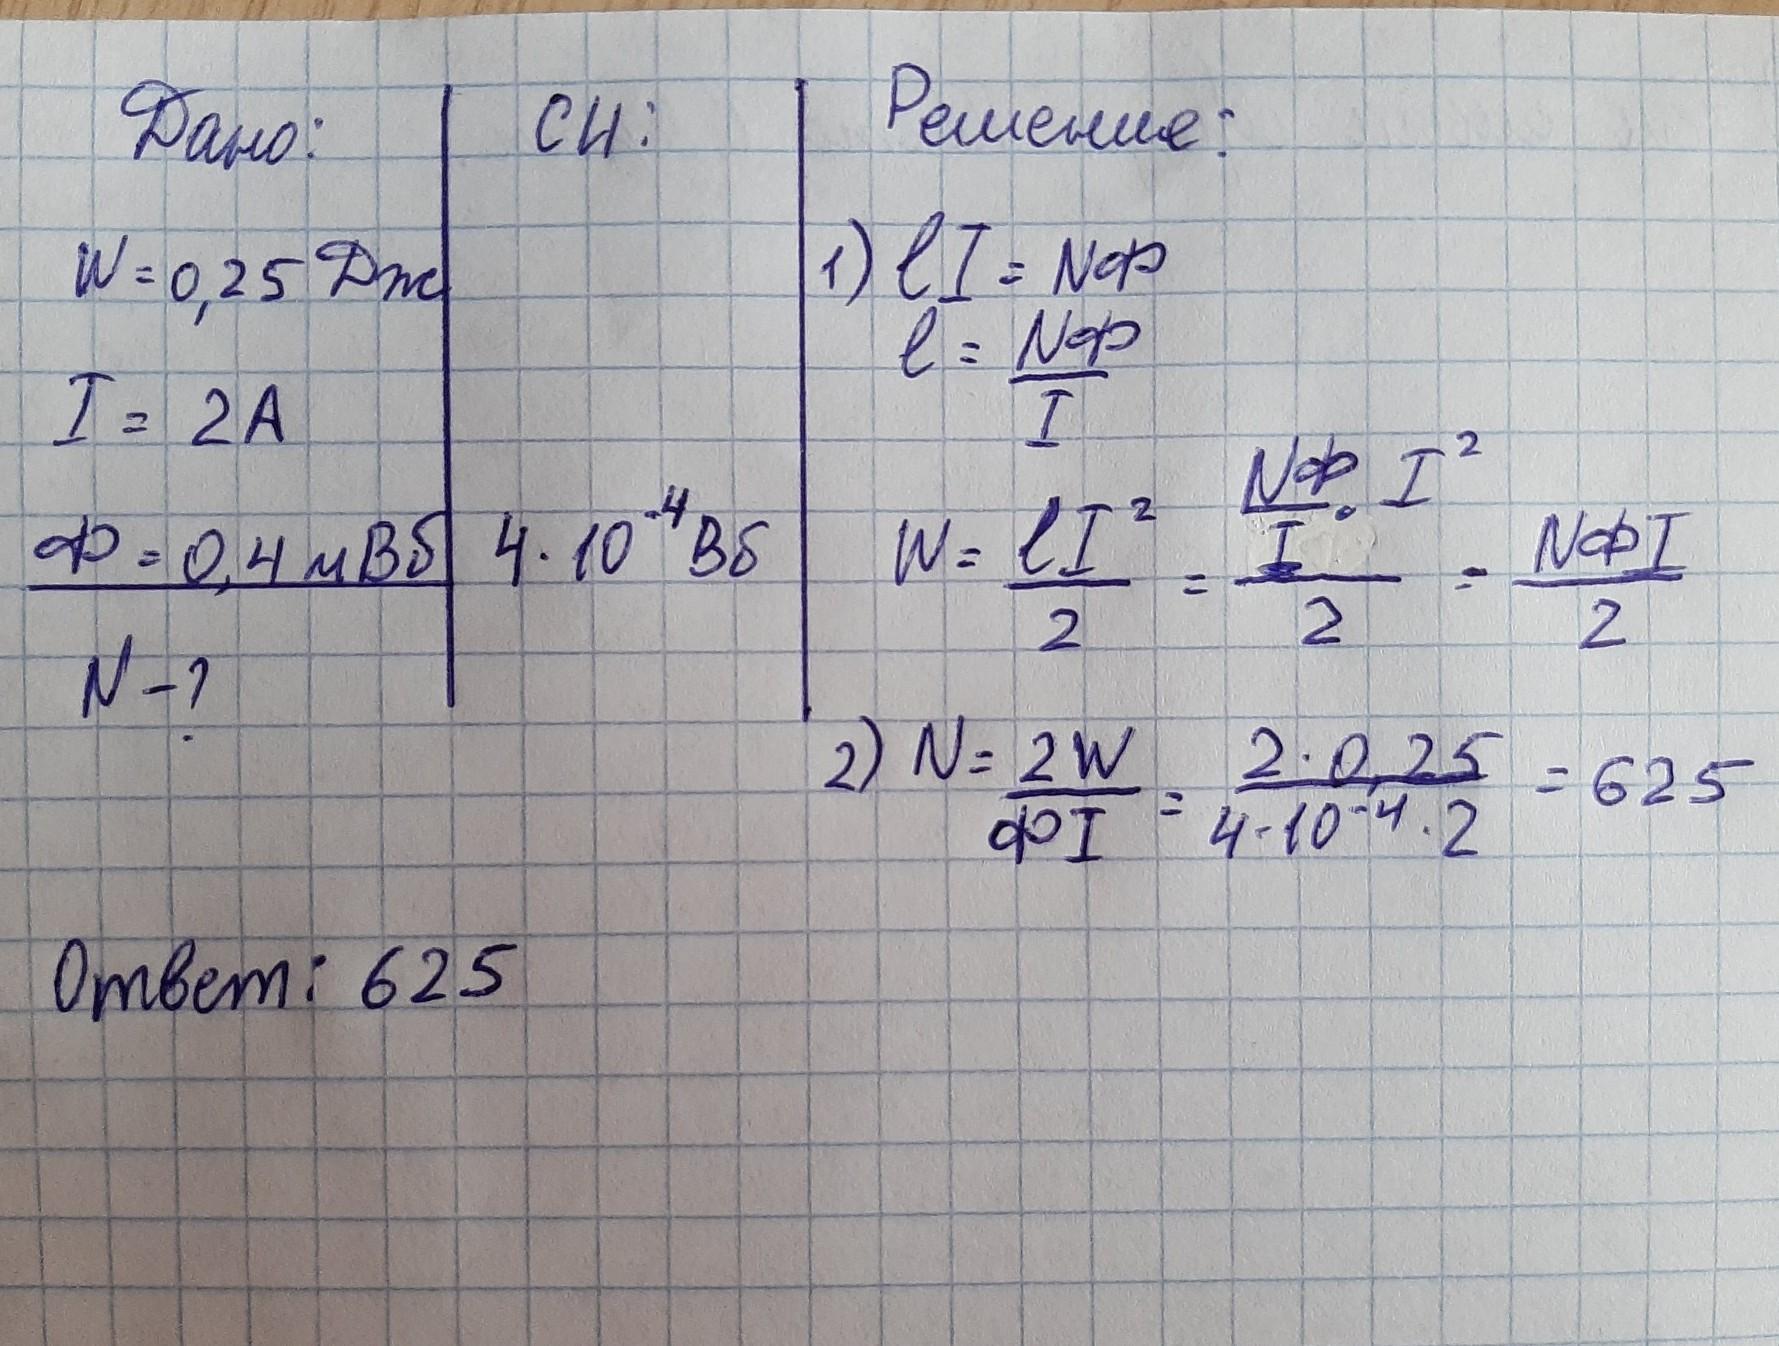 Дано:
W = 0,25 Дж
I = 2А
Ф = 0,4 мВб
N - ?
СИ:
4 · 10⁻⁴ Вб
Решение:
1) lI = NФ
l = NФ/I
W = lI²/2 = (NФ/I · I²)/2 = NФI/2
2) N = 2W/ФI = 2·0,25/4·10⁻⁴·2 = 625
Ответ: 625